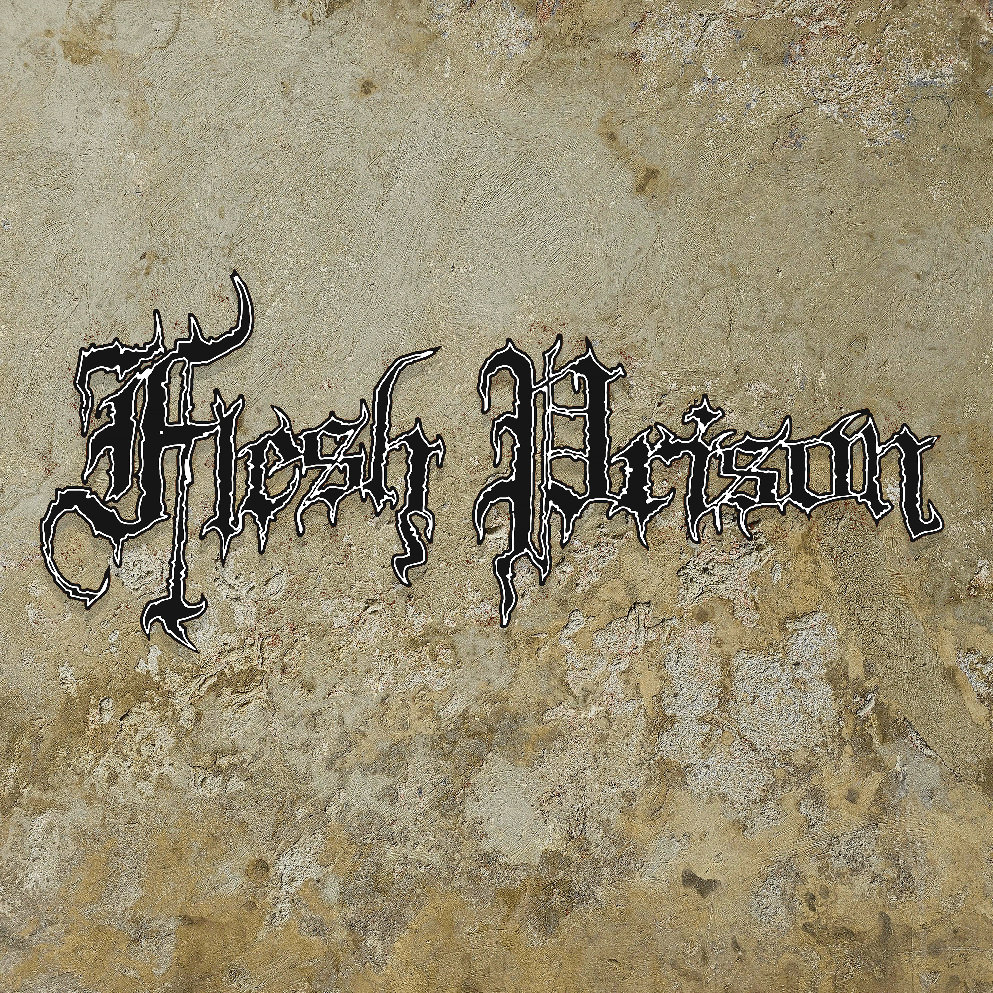 Flesh Prison